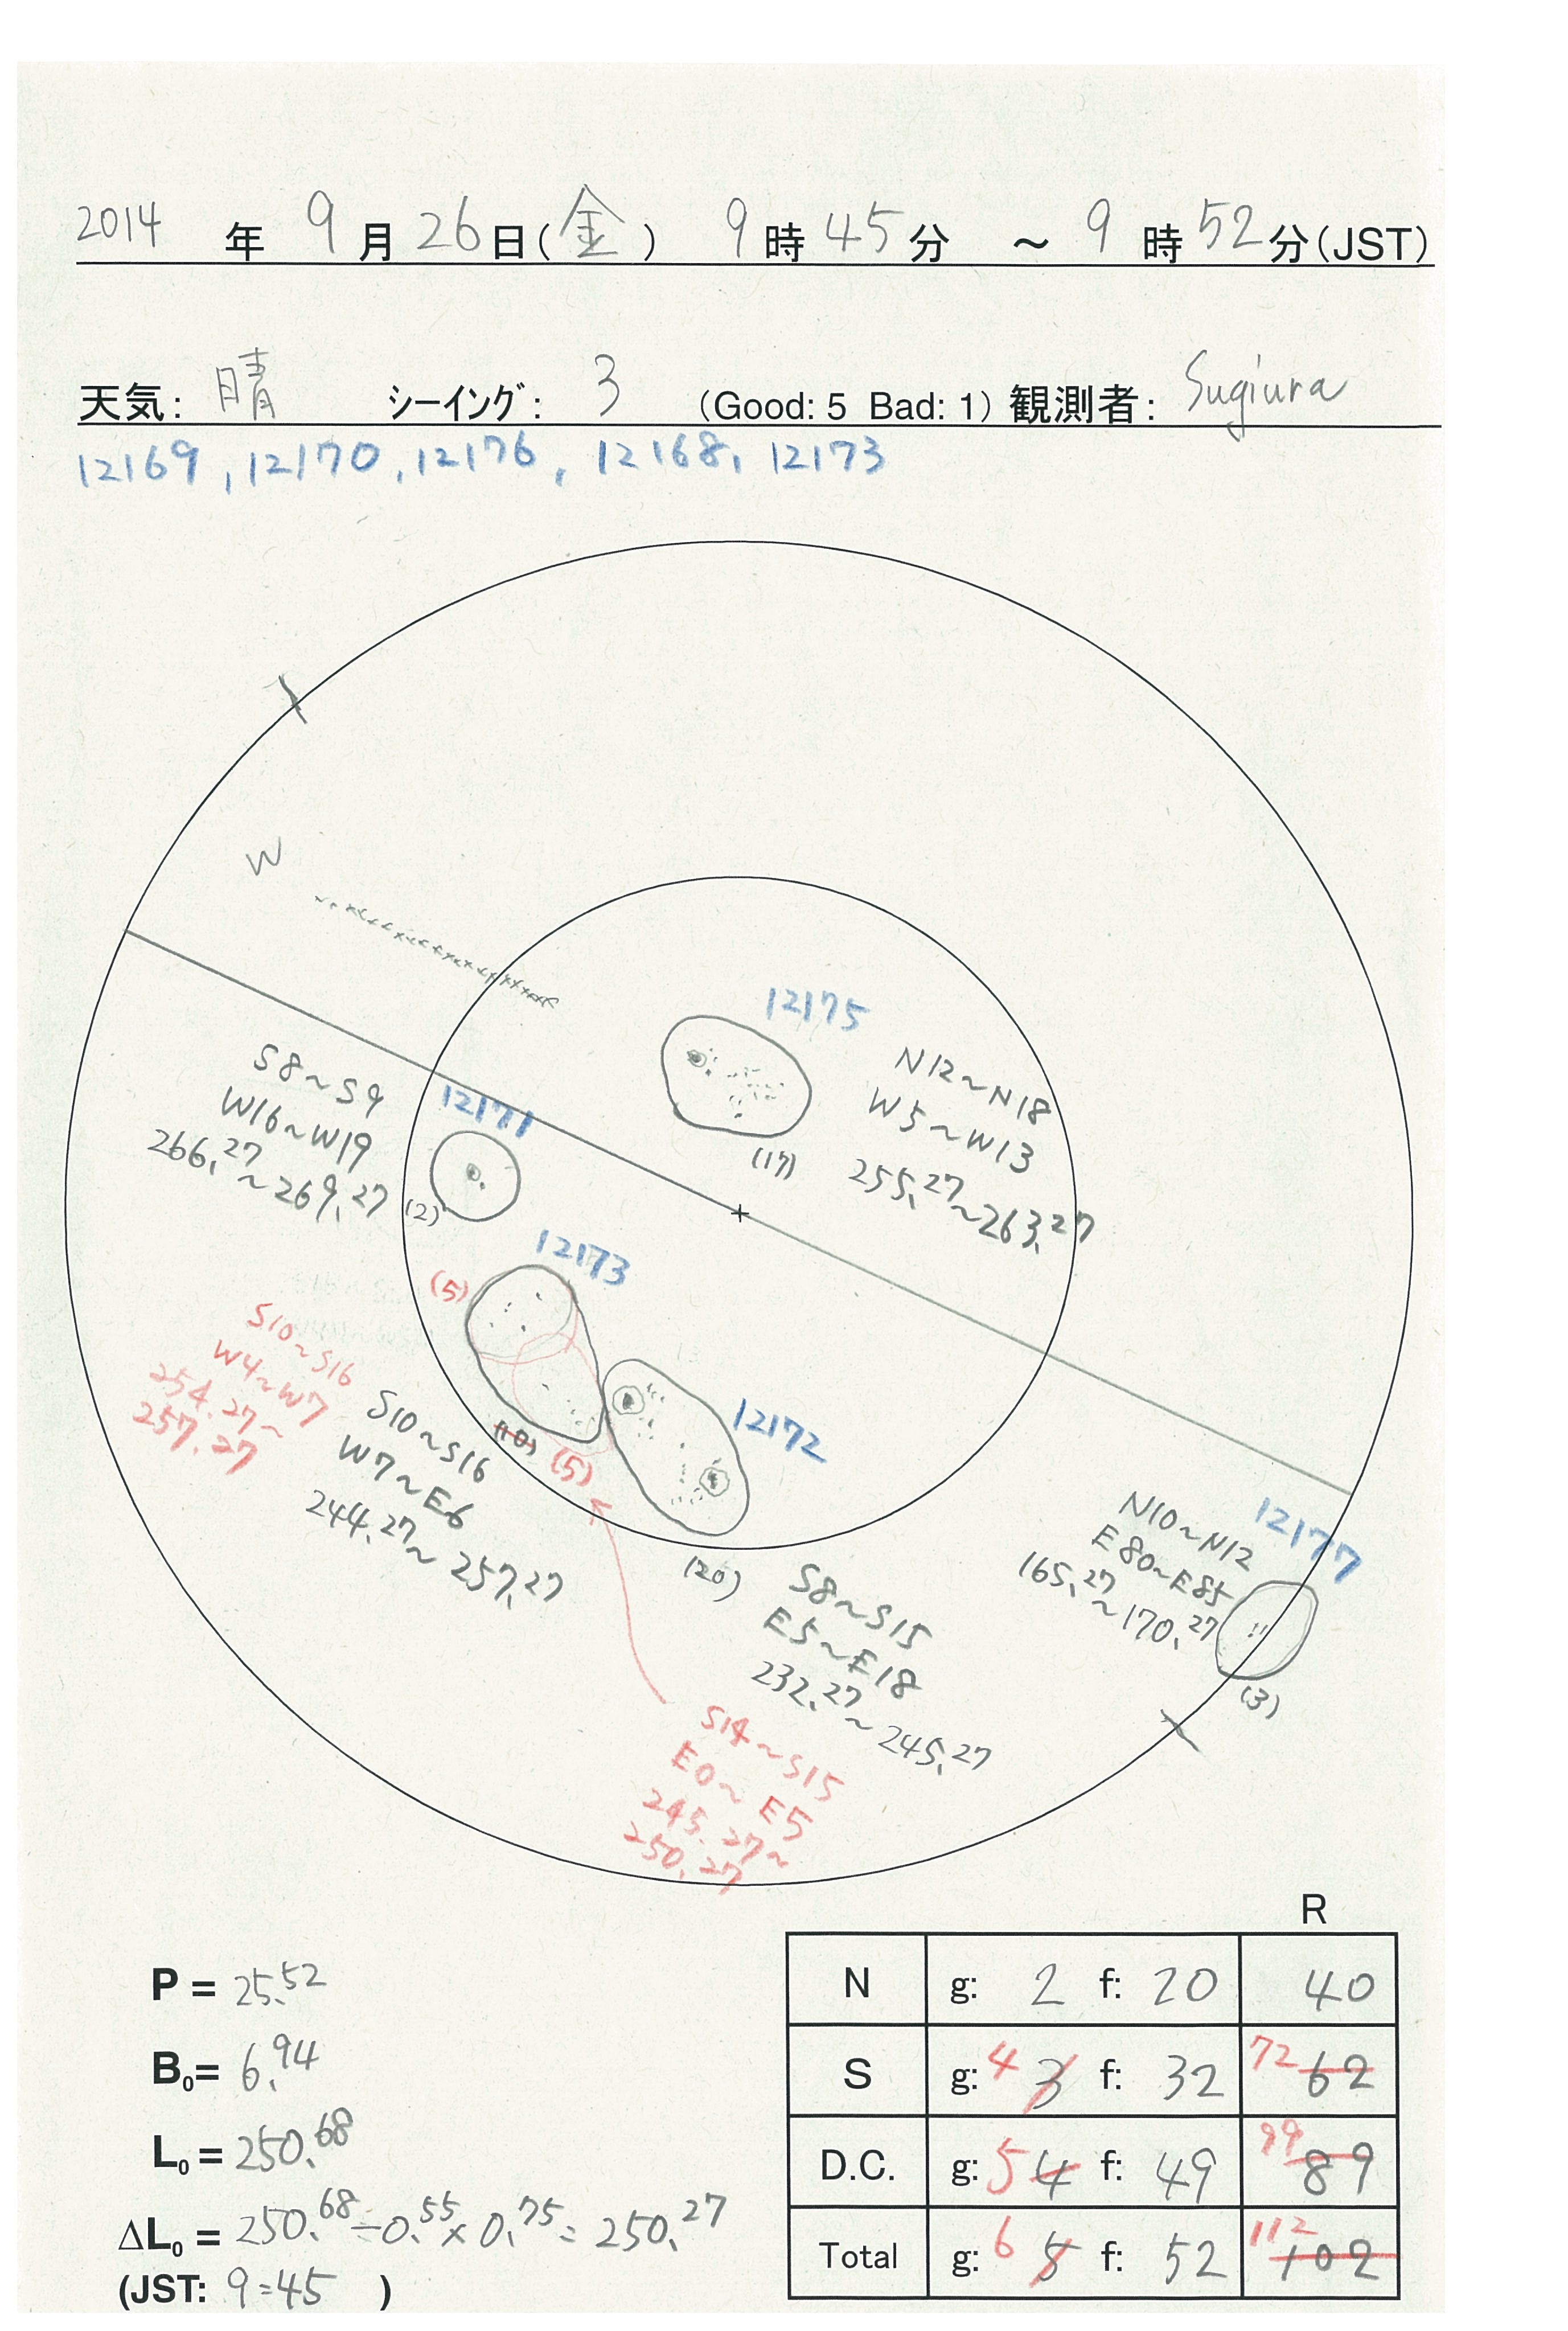 2014 年 9月 26日(金) 9時 45分 ～ 9時 52分(JST)
天気: 晴 シーイング: 3 (Good: 5 Bad: 1) 観測者: Sugiura
12169, 12170, 12176, 12168, 12173
W
12175
N12~N18
W5~W13
255.27~263.27
(17)
S8~S9
W16~W19
266.27~269.27
12171
(2)
12173
(5)
S10~S16
W4~W7
254.27~
257.27
S10~S16
W7~E6
244.27~257.27
(10) (5)
12172
(20)
S8~S15
E5~E18
232.27~245.27
12177
N10~N12
E80~E85
165.27~170.27
(3)
S14~S15
E0~E5
245.27~
250.27
R
P = 25.52
B0= 6.94
L0= 250.68
ΔL0= 250.68-0.55×0.75=250.27
(JST: 9=45 )
N g: 2 f: 20 40
S g: 4 3 f: 32 72 62
D.C. g: 5 4 f: 49 99 89
Total g: 6 5 f: 52 112 102